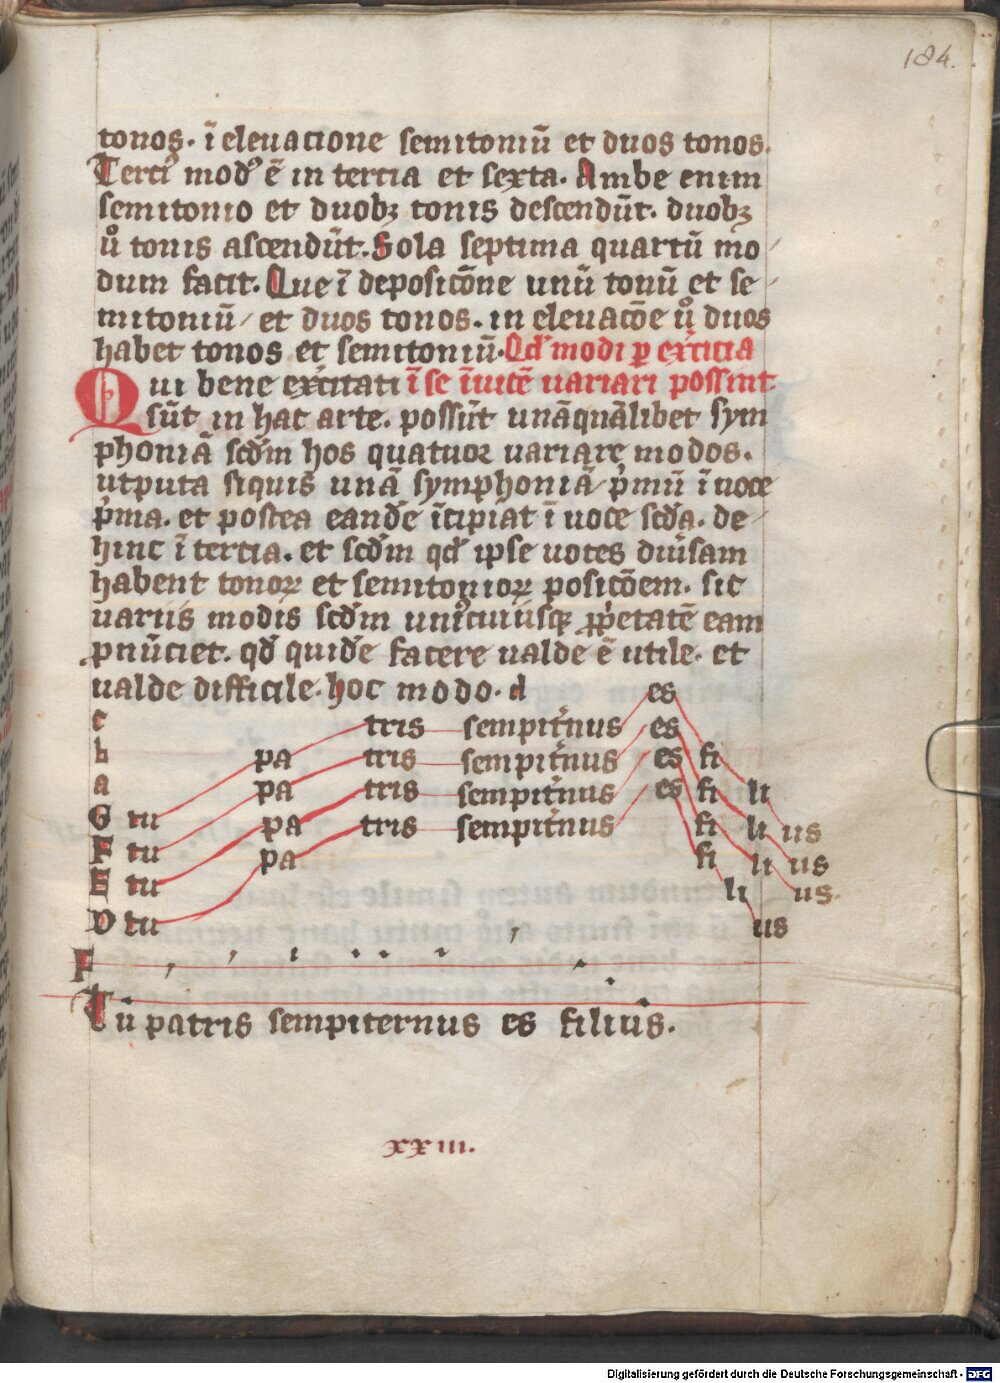 184.
tonos. ī eleuacione semitoniū et duos tonos.
Terci⁹ mod⁹ ē in tercia et sexta. Ambe enim
semitonio et duobꝫ tonis descendūt. duobꝫ
uͦ tonis ascendūt. Sola septima quartū mo
dum facit. Que ī deposicōne unū tonū et se
mitoniū et duos tonos. in eleuacōe uͦ duos
habet tonos et semitoniū. Qd' modi ꝑ ex̄citia
Qui bene ex̄citati ī se īuicē uariari possint
sūt in hac arte. possūt unāquālibet sym
phoniā scd'm hos quatuor uariare modos.
utputa siquis unā symphoniā p̍mū ī uoce
p̍ma. et postea eand'e īcipiat ī uoce scd'a. de
hinc ī tercia. et scd'm qd' ipse uoces diu'sam
habent tonoꝝ et semitonioꝝ posicōem. sic
uariis modis scd'm uni⁹cuiusqꝫ ꝓp̍etatē eam
ꝓnūciet. qd' quid'e facere ualde ē utile. et
ualde difficile. hoc modo. d es
c tris sempit'nus es
b pa tris sempit'nus es fi
a pa tris sempit'nus es fi li
G tu pa tris sempit'nus fi li us
F tu pa fi li us
E tu li us.
D tu us
F
Tū patris sempiternus es filius.
xxiii.
Digitalisierung gefördert durch die Deutsche Forschungsgemeinschaft - DFG